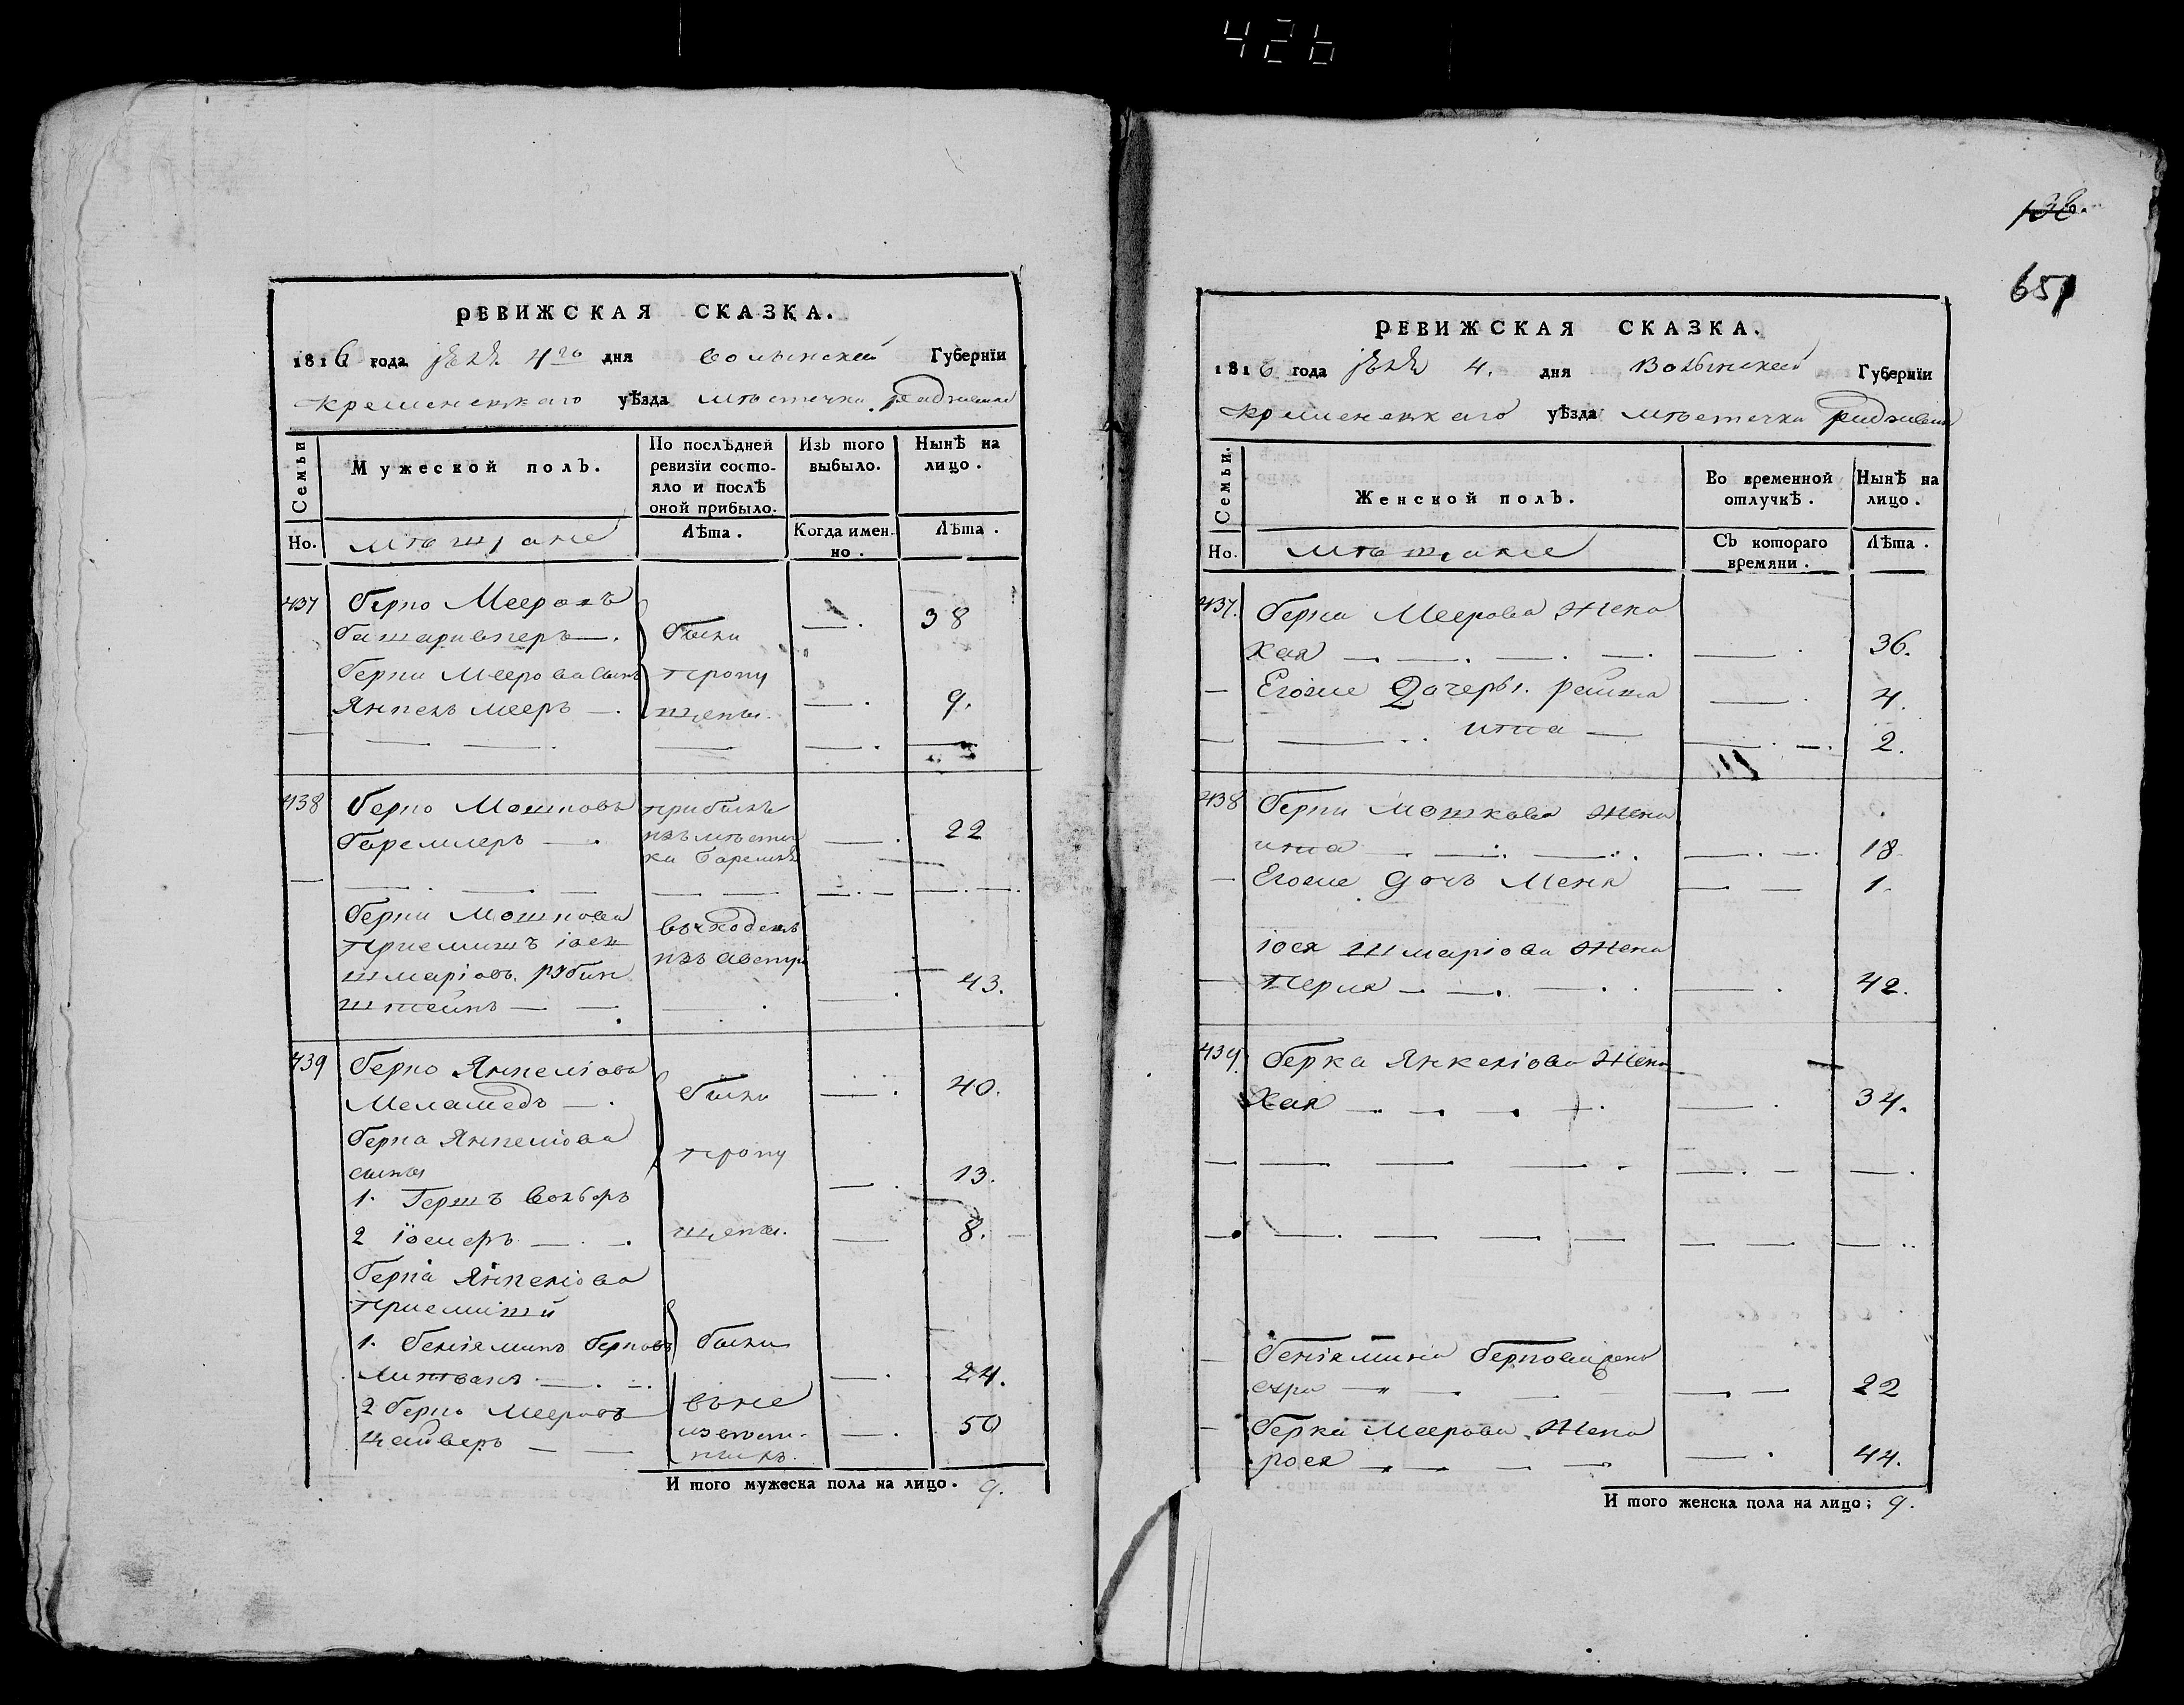 426
РЕВИЖСКАЯ СКАЗКА.
1816 года 4го дня Волынской Губернїи
Кременецкаго уѣзда мѣстечка Радзивил
Семьи
Мужеской полъ.
По послѣдней ревизїи состо-
яло и послѣ
оной прибыло.
Изъ того
выбыло.
Нынѣ на
лицо.
Но.
мѣщане
Лѣта.
Когда имен-
но.
Лѣта.
437 Берко Мееровъ
были
38
Берки Меерова сынъ
пропу
Янкель Мееръ —.
щены.
9.
438 Берко Мошковъ
прибылъ
Боремлеръ —.
изъ мѣстеч
22
ка Боремля
Берки Мошкова
приемышъ Іос
изъ Австри
Шмаріовъ. Рубин
43.
штейнъ — —.
439 Берко Янкеліовъ
были
40.
Меламедъ —.
Берка Янкеліова
пропу
сыны
13.
1. Гершъ Вольфъ
2 Іосиеръ — . — .
щены.
8.
Берка Янкеліова
приемыши
1. Беніяминъ Берковъ
были
Литвакъ — . — .
24.
2 Берко Мееровъ
50
Цайверъ — —
И того мужеска пола на лицо. 9.
136.
651
РЕВИЖСКАЯ СКАЗКА.
1816 года 4. дня Волынской Губернїи
Кременецкаго уѣзда мѣстечка Радзивил
Семьи.
Женской полъ.
Во временной
отлучкѣ.
Нынѣ на
лицо.
Но.
мѣщане
Съ котораго
времяни.
Лѣта.
437. Берки Меерова жена
Хая
36.
Егоже дочеры. Рейза
4.
Ита
2.
438 Берки Мошкова жена
Ита
18
Егоже дочь Меня
1.
Іося Шмаріова жена
Перля
42.
439. Берка Янкеліова жена
Хая
34.
Беніямина Беркова жена
22
Берка Меерова жена
Рося
44.
И того женска пола на лицо; 9.